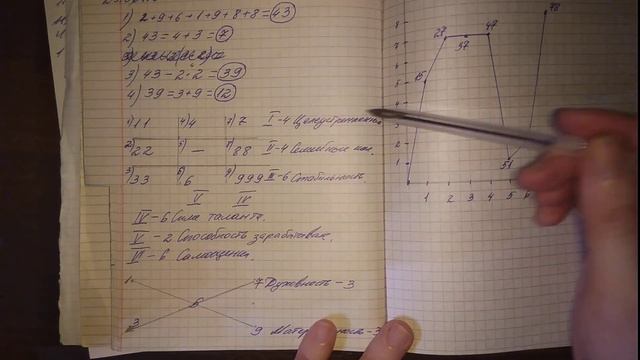 1) 2+9+6+1+9+8+8=43
2) 43=4+3=7
3) 43-2·2=39
4) 39=3+9=12
1) 11 4) 4 7) 7 I-4
2) 22 5) — 8) 88 II-4 Семейные
3) 33 6) 6 9) 999 III-6 Стабильность.
V IV
IV-6 Сила таланта.
V-2 Способность
VI-6 Самооценка.
1. 7 Духовность-3
6
3 9
8
7
6
5
4
3
2
1
1 2 3 4 5 6
15
29
57
47
51
78